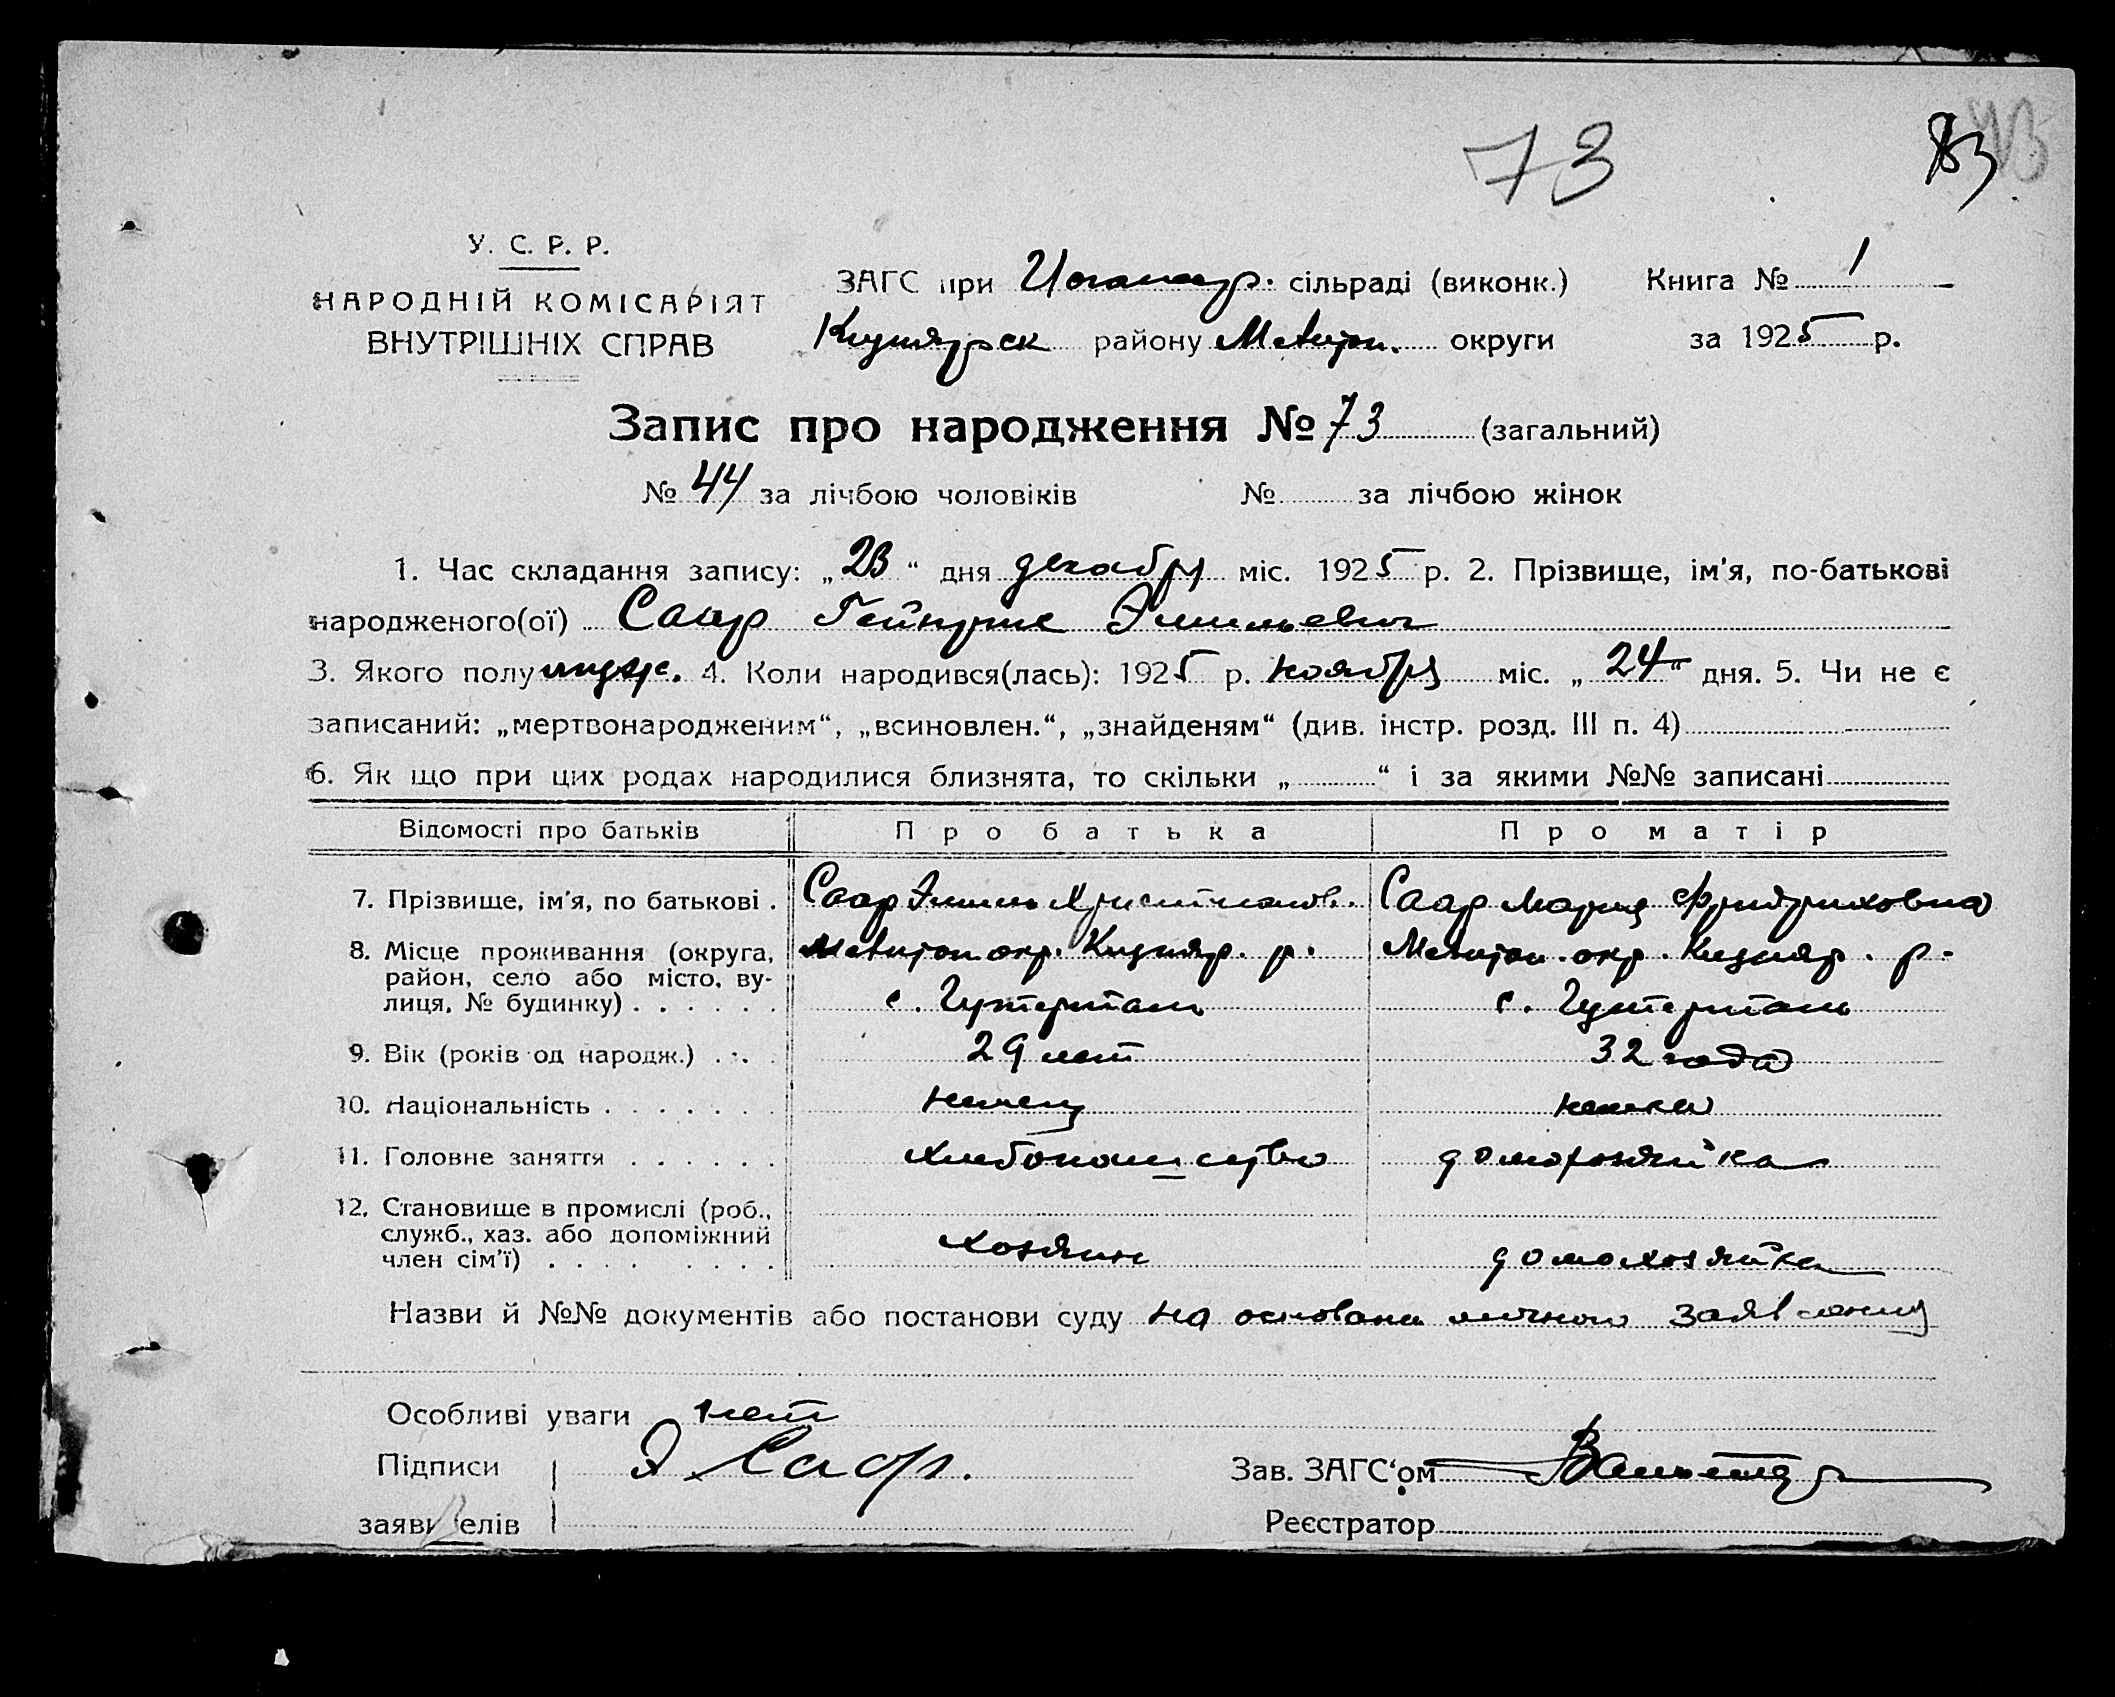 73
83
У. С. Р. Р.
НАРОДНІЙ КОМІСАРІЯТ
ВНУТРІШНІХ СПРАВ
ЗАГС при сільраді (виконк.) Книга № 1
району Мелитоп. округи за 1925 р.
Запис про народження № 73 (загальний)
№ 44 за лічбою чоловіків № за лічбою жінок
1. Час складання запису: „23“ дня декабря міс. 1925 р. 2. Прізвище, ім'я, по-батькові
народженого(ої) Саар Гейнрих Эмильевич
3. Якого полу муж. 4. Коли народився(лась): 1925 р. ноября міс. „24“ дня. 5. Чи не є
записаний: „мертвонародженим“, „всиновлен.“, „знайденям“ (див. інстр. розд. III п. 4)
6. Як що при цих родах народилися близнята, то скільки „ “ і за якими №№ записані
Відомості про батьків Про батька Про матір
7. Прізвище, ім'я, по батькові . Саар Эмиль Христианов. Саар Мария Фридриховна
8. Місце проживання (округа, район, село або місто, вулиця, № будинку) . . . . . . Мелитоп. окр. Кизияр. р. Мелитоп. окр. Кизияр. р.
с. Гутерталь с. Гутерталь
9. Вік (років од народж.) . . . 29 лет 32 года
10. Національність . . . . . . . немец немка
11. Головне заняття . . . . . . хлебопашество домохозяйка
12. Становище в промислі (роб., служб., хаз. або допоміжний член сім'ї) . . . . . . . . хозяин домохозяйка
Назви й №№ документів або постанови суду на основани личного заявления
Особливі уваги нет
Підписи Э Саар. Зав. ЗАГС‘ом
заявителів Реєстратор